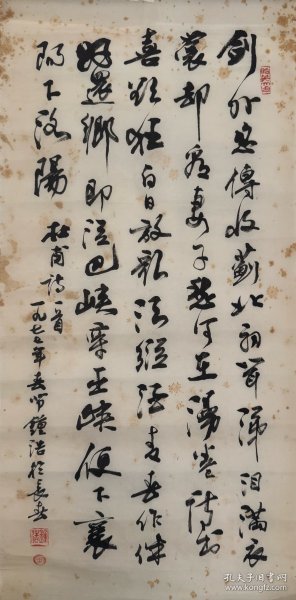 剑外忽传收蓟北初闻涕泪满衣
裳却看妻子愁何在漫卷诗书
喜欲狂白日放歌须纵酒青春作伴
好還鄉即從巴峡穿巫峡便下襄
陽下洛陽 杜甫詩一首
一九七七年 鍾浩於長春
孔夫子旧书网